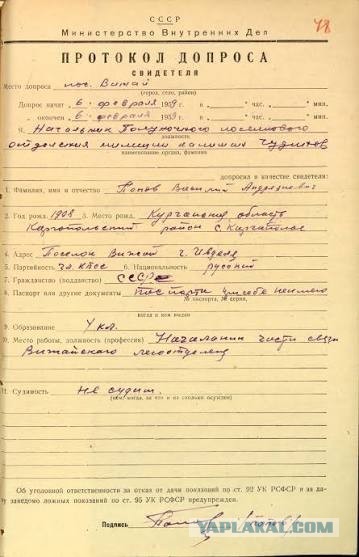 СССР
48
Министерство Внутренних Дел
ПРОТОКОЛ ДОПРОСА
СВИДЕТЕЛЯ
Место допроса пос. Вижай
(город, село, район)
Допрос начат „6" февраля 1959 г. в „ " час. мин.
„ окончен „6" февраля 1959 г. в „ " час. мин.
Я, Начальник Полуночного поселкового
должность
отделения милиции капитан Чудинов
наименование органа, фамилия
допросил в качестве свидетеля:
1. Фамилия, имя и отчество Попов Василий Андреевич
2. Год рожд. 1908 3. Место рожд. Курганская область
Каргопольский район с. Каргаполье
4. Адрес Поселок Вижай г. Ивдель
5. Партийность чл. КПСС 6. Национальность русский
7. Гражданство (подданство) СССР
8. Паспорт или другие документы паспорта у себя не имею
№ паспорта, № серии,
когда и кем выдан
9. Образование 4 кл.
10. Место работы, должность (профессия) Начальник части связи
Вижайского лесоотделения
11. Судимость не судим.
(кем, когда, за что и на сколько осужден)
Об уголовной ответственности за отказ от дачи показаний по ст. 92 УК РСФСР и за да-
чу заведомо ложных показаний по ст. 95 УК РСФСР предупрежден.
Подпись Попов
YAPLAKAL.COM